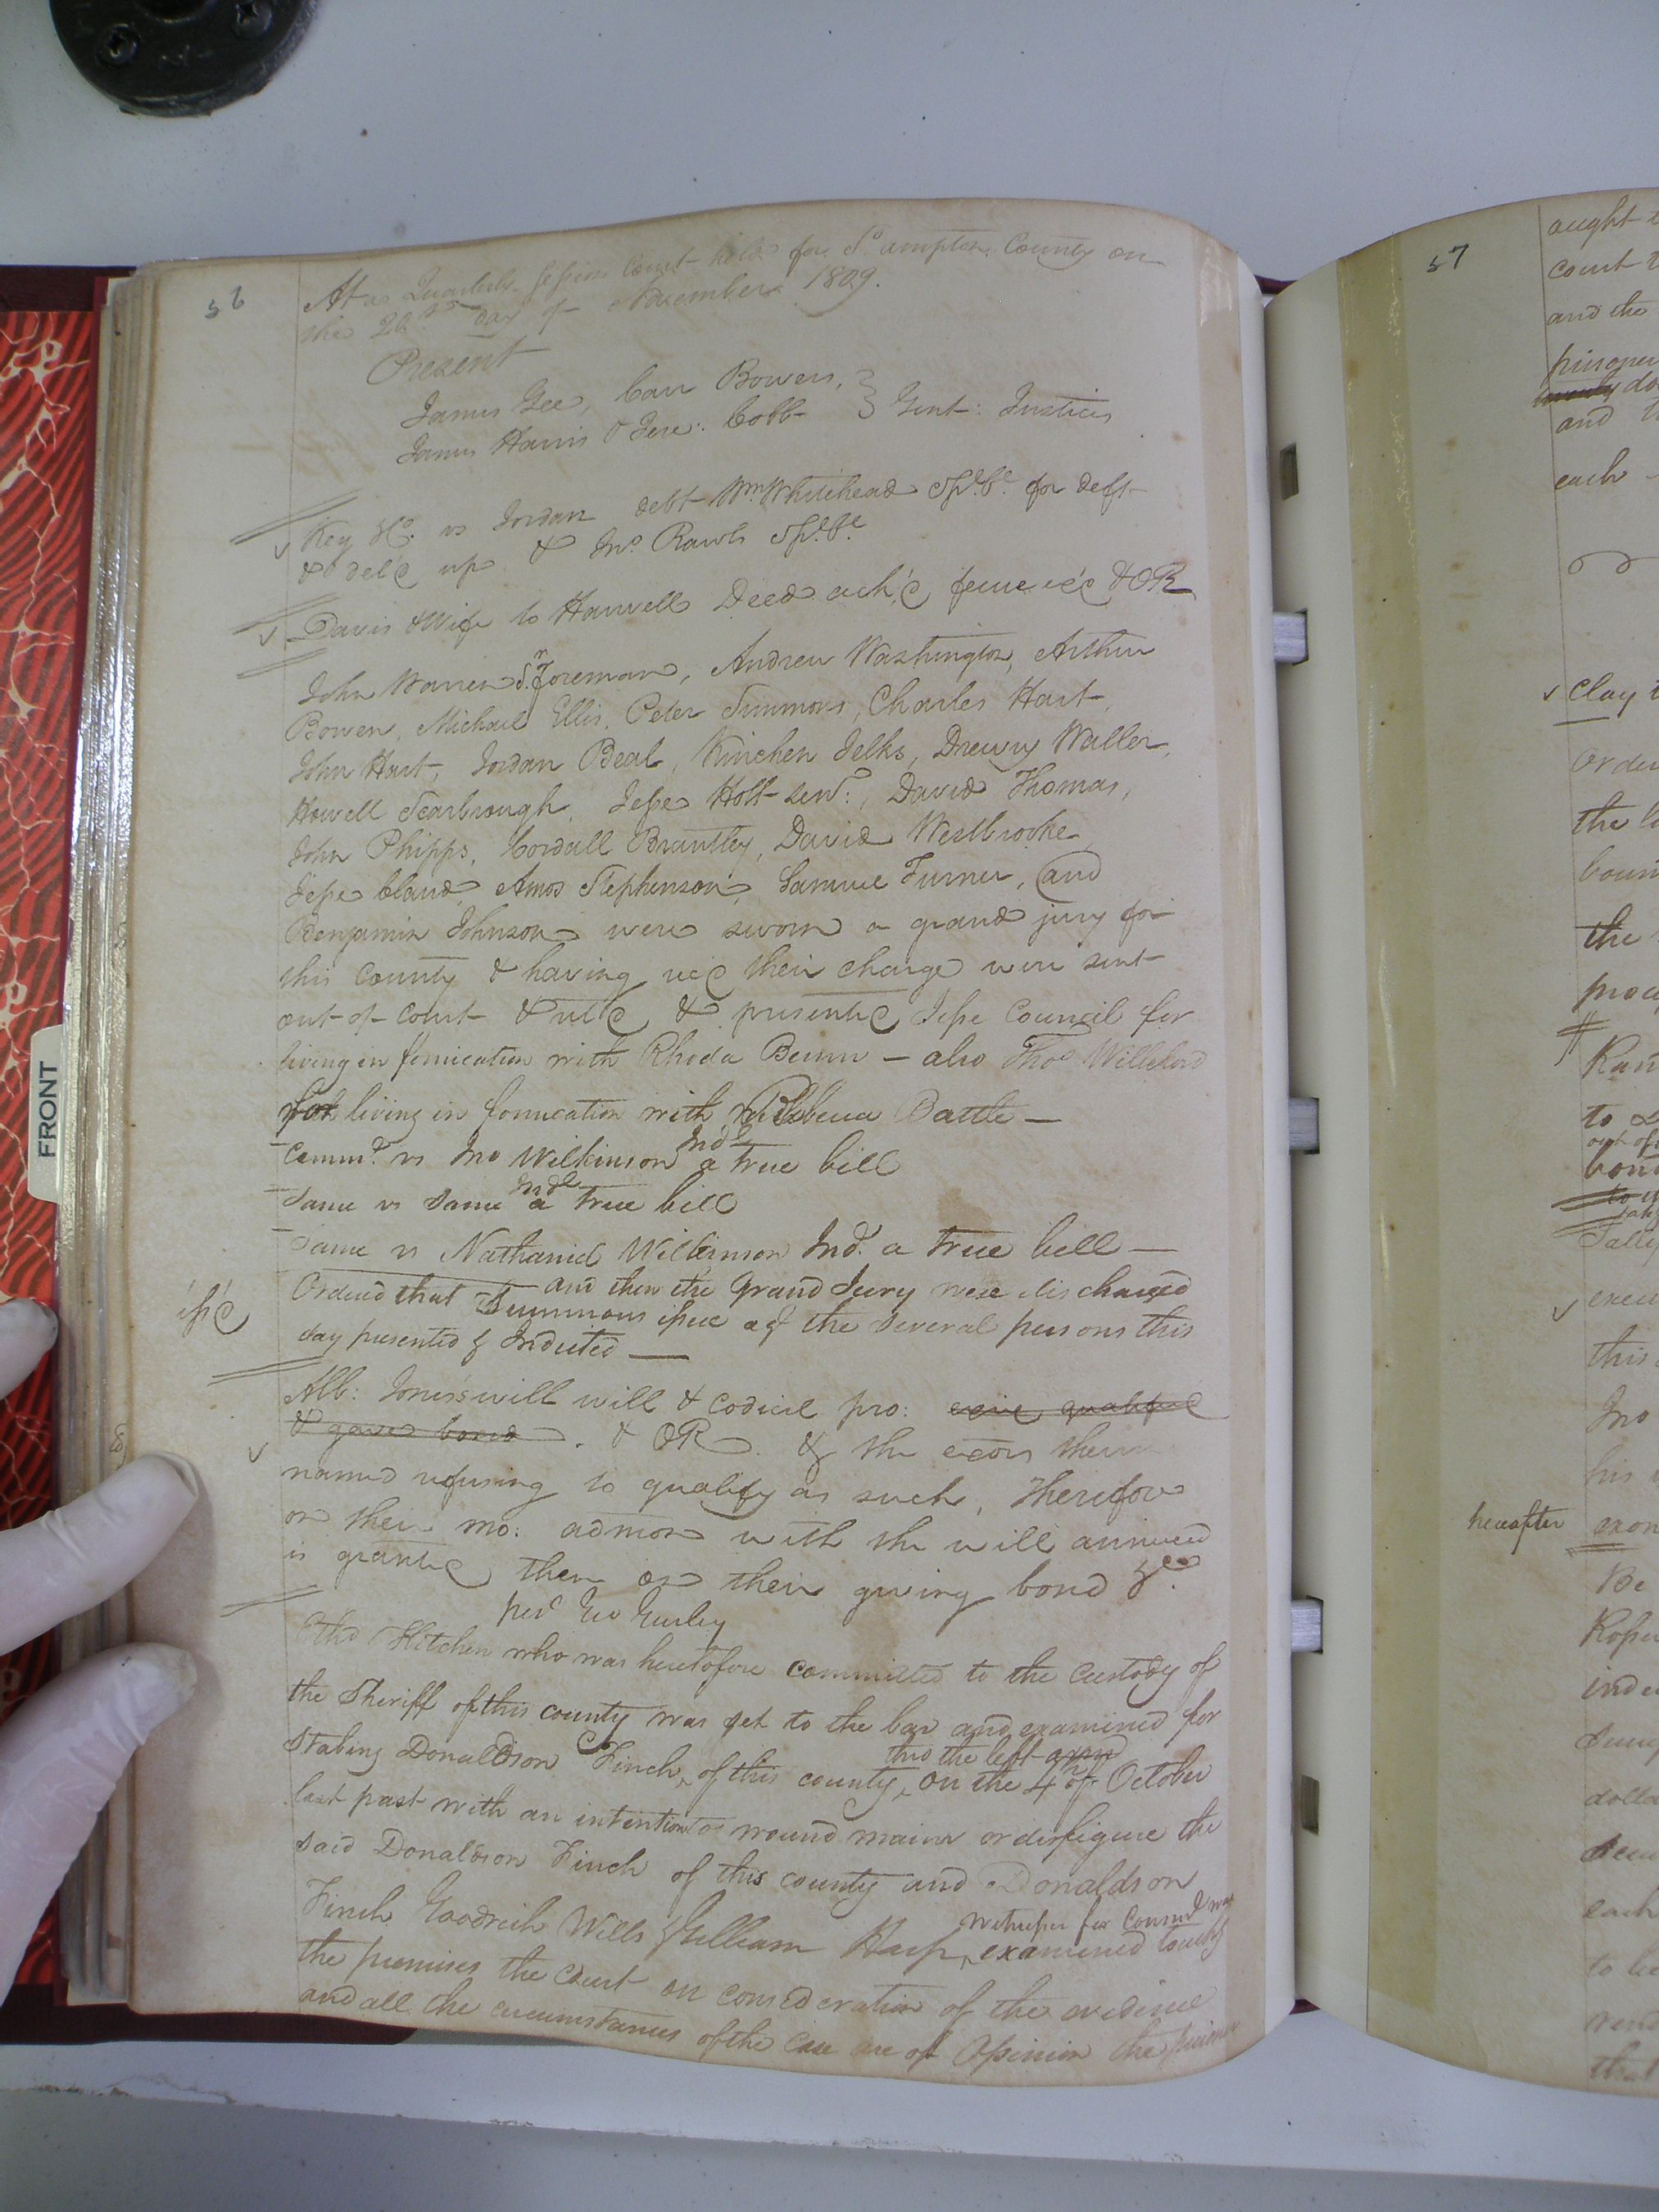 56
At a Quarterly Session Court held for S:ampton County on
the 20th day of November 1809.
Present
James Gee, Carr Bowers,
James Harris & Jere: Cobb } Gent: Justices
Key &C. vs Jordan debt Wm Whitehead Spl. be. for deft
& del'd up & Jno Rawls Spl. be.
Davis & Wife to Harwell Deed ack'd feme ex'd & OR
John Warren Sr. Foreman, Andrew Washington, Arthur
Bowen, Michael Ellis, Peter Simmons, Charles Hart,
John Hart, Jordan Beal, Kinchen Jelks, Drewry Waller,
Howell Scarbrough, Jesse Holt senr:, David Thomas,
John Phipps, Cordall Brantley, David Westbrooke
Jesse Cland, Amos Stephenson, Samuel Turner, and
Benjamin Johnson were sworn a grand jury for
this County & having rec'd their charge were sent
out of court & ret'd & presented Jesse Council for
living in fornication with Rhoda Bevin — also Thos Williford
for living in fornication with Rebecca Battle —
Commth. vs Jno Wilkinson Indt a true bill
Same vs Same Indt a true bill
Same vs Nathaniel Wilkinson Ind. a true bill —
and then the Grand Jury were discharged
iss'd
Ordered that Summons issue agt the several persons this
day presented & Indicted —
Alb: Jones's will will & codicil pro: exix qualified
& gave bond. & OR & the exors therein
named refusing to qualify as such, Therefore
on their mo: admon with the will annexed
is granted them on their giving bond &c.
pest Geo Gurley
Otho Kitchen who was heretofore committed to the custody of
the Sheriff of this county was set to the bar and examined for
Stabing Donaldson Finch, of this county, thro the left arm on the 4th of October
last past with an intention to wound maim or disfigure the
said Donaldson Finch of this county and Donaldson
Finch Goodrich Wills & William Harp, witnesses for Commth was examined touchg
the premises the court on consideration of the evidence
and all the circumstances of the case are of Opinion the prisoner
57
ought
court
and the
prisoner
and
each
Clay
Order
the
boun
the
to
out of
bond
Sally
this
Jno
his
hereafter
Be
dolla
each
to be
that
FRONT